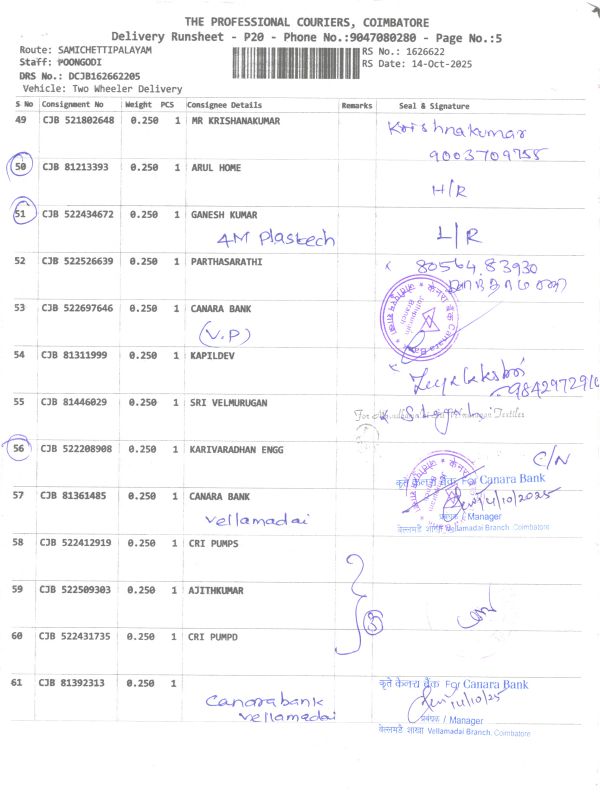 THE PROFESSIONAL COURIERS, COIMBATORE
Delivery Runsheet - P20 - Phone No.:9047080280 - Page No.:5
Route: SAMICHETTIPALAYAM
RS No.: 1626622
Staff: POONGODI
RS Date: 14-Oct-2025
DRS No.: DCJB162662205
Vehicle: Two Wheeler Delivery
S No Consignment No Weight PCS Consignee Details Remarks Seal & Signature
49 CJB 521802648 0.250 1 MR KRISHNAKUMAR Krishnakumar
9003709755
50 CJB 81213393 0.250 1 ARUL HOME
H/R
51 CJB 522434672 0.250 1 GANESH KUMAR
4M Plastech L/R
52 CJB 522526639 0.250 1 PARTHASARATHI 80564 83930
53 CJB 522697646 0.250 1 CANARA BANK
(V.P)
Canara Bank
54 CJB 81311999 0.250 1 KAPILDEV
55 CJB 81446029 0.250 1 SRI VELMURUGAN
Textiles
56 CJB 522208908 0.250 1 KARIVARADHAN ENGG C/N
कृते केनरा बैंक For Canara Bank
57 CJB 81361485 0.250 1 CANARA BANK 14/10/2025
Vellamadai प्रबंधक / Manager
वेल्लमडै शाखा Vellamadai Branch, Coimbatore
58 CJB 522412919 0.250 1 CRI PUMPS
59 CJB 522509303 0.250 1 AJITHKUMAR
60 CJB 522431735 0.250 1 CRI PUMPD
61 CJB 81392313 0.250 1 कृते केनरा बैंक For Canara Bank
Canara bank 14/10/25
vellamadai प्रबंधक / Manager
वेल्लमडै शाखा Vellamadai Branch, Coimbatore